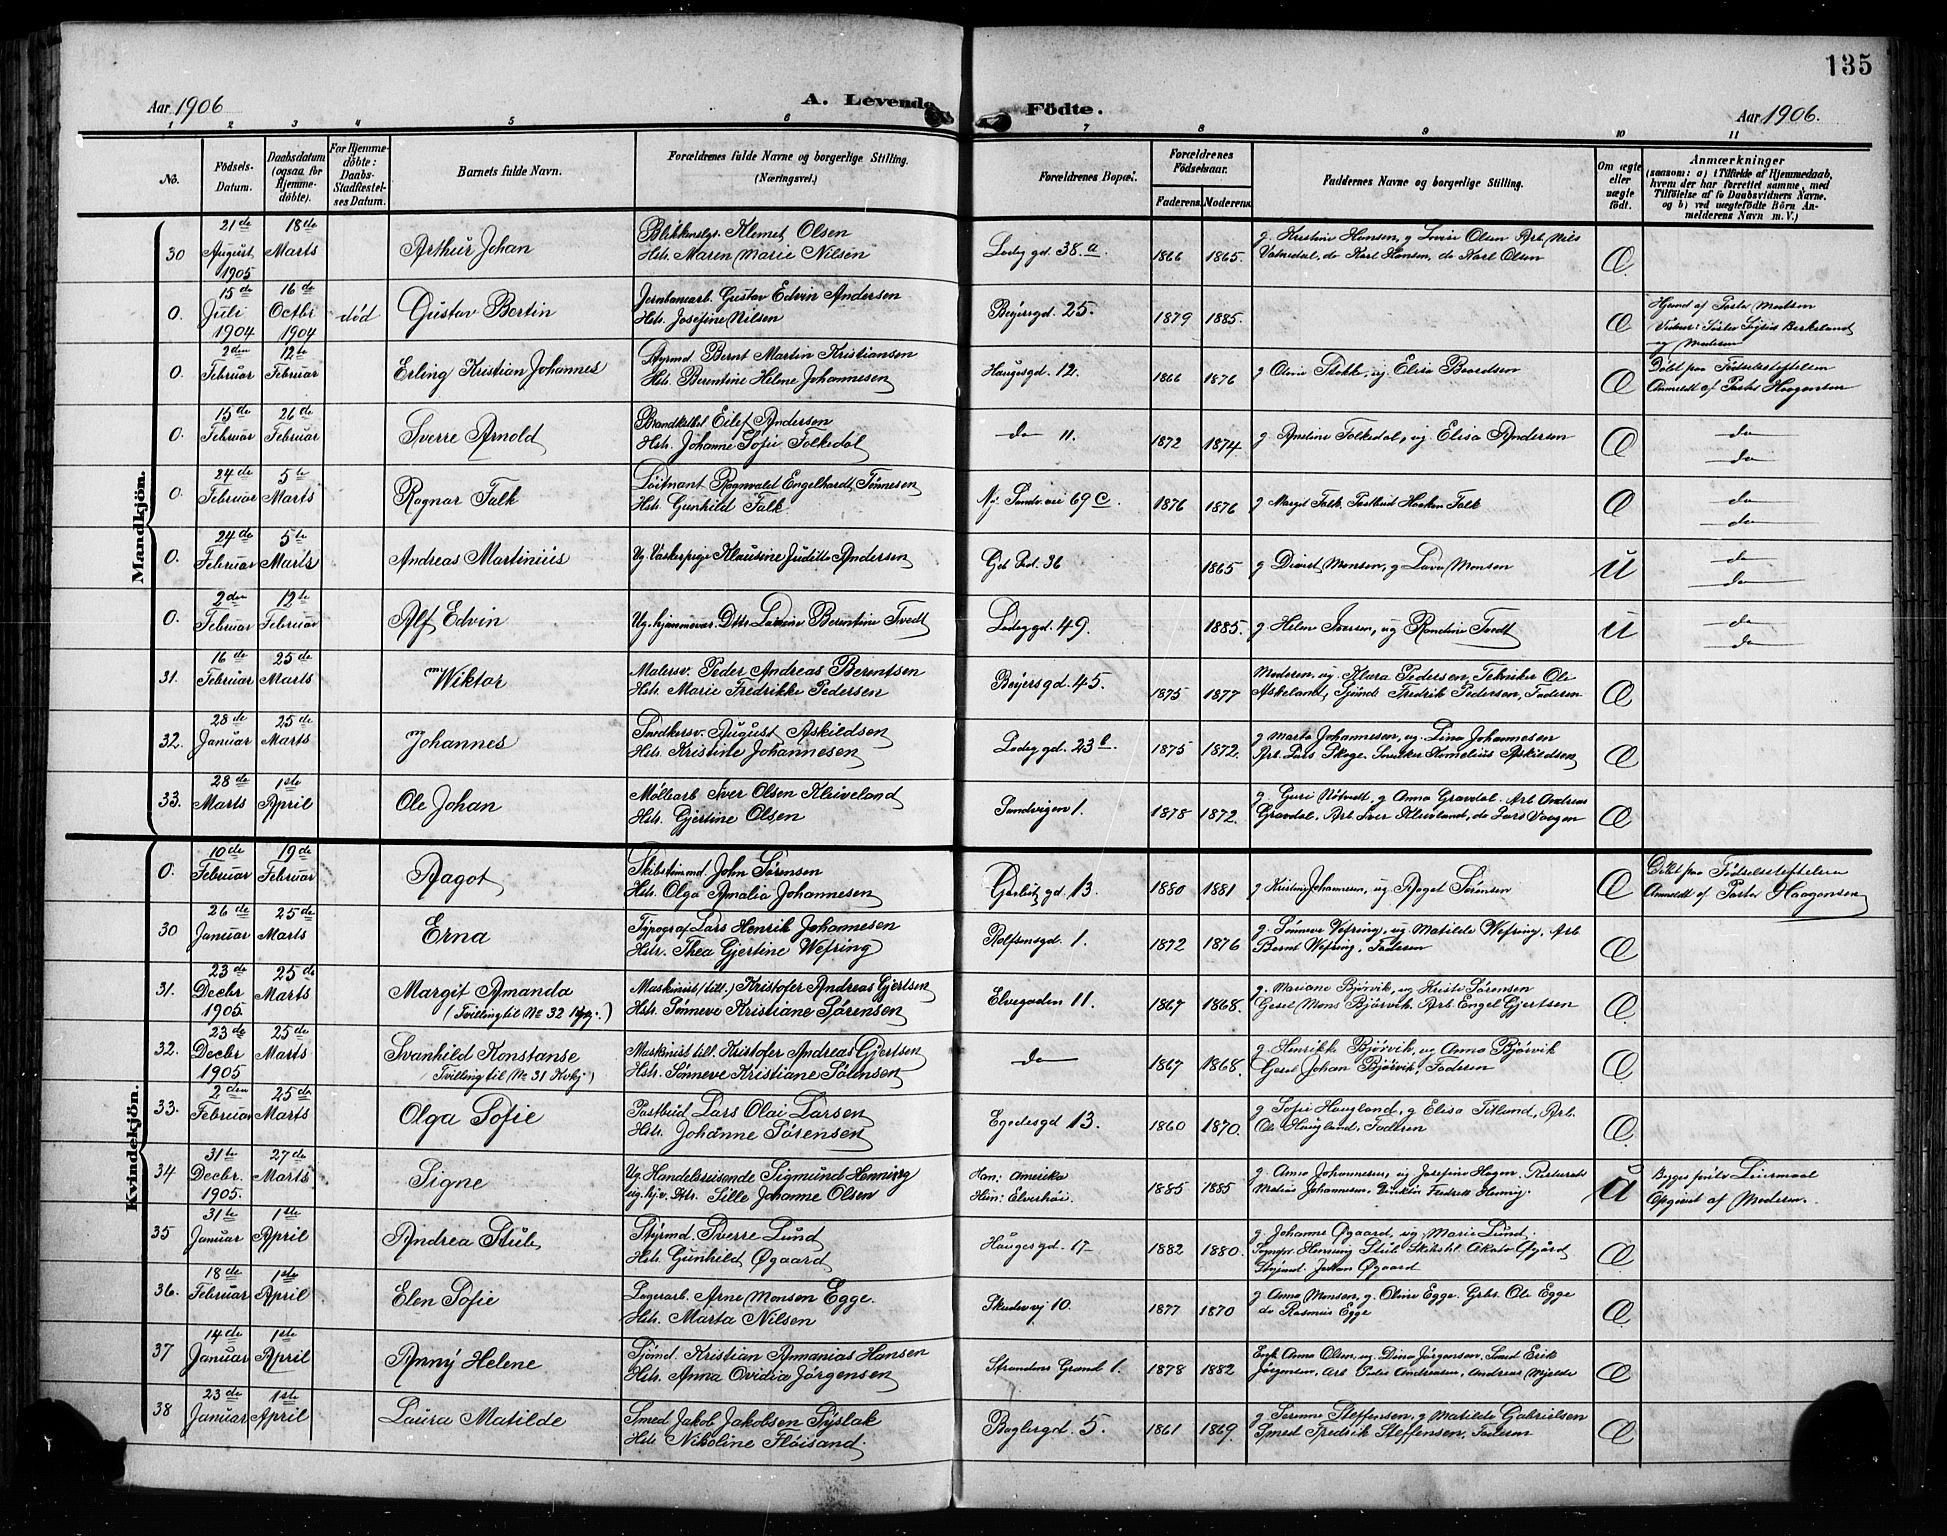 135
Aar 1906
A. Levende Födte.
Aar 1906.
1 2 3 4 5 6 7 8 9 10 11
No.
Födsels-Datum.
Daabsdatum (ogsaa for Hjemme-döbte).
For Hjemme-döbte: Daabs-Stadfæstel-ses Datum.
Barnets fulde Navn.
Forældrenes fulde Navne og borgerlige Stilling.
(Næringsvei.)
Forældrenes Bopæl.
Forældrenes Födselsaar.
Faderens. Moderens.
Faddernes Navne og borgerlige Stilling.
Om ægte eller uægte födt.
Anmærkninger
(saasom: a) i Tilfælde af Hjemmedaab, hvem der har forrettet samme, med Tilföielse af to Daabsvidners Navne, og b) ved uægtefödte Börn An-melderens Navn m. V.)
Mandkjön.
30 21de August 1905 18de Marts Arthur Johan
Blikkenslgs. Klemet Olsen
Hstr. Maren Marie Nilsen
Ladegd. 38 a 1866 1865.
g Kristine Hansen, g Lovise Olsen Arb. Nils
Vatnedal, do Karl Hansen, do Karl Olsen Æ
0. 15de Juli 1904 16de Octbr 1904 död Gustav Bertin
Jernbanearb. Gustav Edvin Andersen
Hstr. Josefine Nilsen
Beyersgd. 25. 1879 1885. Æ
Hjemd af Pastor Madsen
Vidner: Søster Sigrid Berkeland
og Moderen
0. 2den Februar 12te Februar Erling Kristian Johannes
Styrmd Bernt Martin Kristiansen
Hstr. Berentine Helene Johannesen
Haugesgd. 12. 1866 1876
g Oline Stokke, ug. Elisa Baardsen Æ
Döbt paa Födselsstiftelsen
Anmeldt af Pastor Haagensen
0. 15de Februar 26de Februar Sverre Arnold
Brandkstbl Eilef Andersen
Hstr. Johanne Sofie Folkedal
do 11. 1872 1874.
g Anstine Folkedal, ug Elisa Andersen Æ
do
do
0. 24de Februar 5te Marts Ragnar Falk
Löitnant Ragnvald Engelhardt Tönnesen
Hstr. Gunhild Falk.
Ny Sandv.vei 69 c. 1876 1876
g Margit Falk, Postbud Haakon Falk Æ
do
do
0. 24de Februar 5te Marts Andreas Martinius
Ug. Vaskerpige Klausine Juditte Andersen
36 1865
g Divert Monsen, g Lava Monsen u
do
do
0. 2den Februar 12te Februar Alf Edvin
Ug. hjemmevær. Dttr. Larsine Berentine Tvedt
Ladegd. 49. 1885.
g Helene Iversen, ug Randine Tvedt u
do
do
31. 16de Februar 25de Marts Wiktor
Malersv. Peder Andreas Berentsen
Hstr. Marie Fredrikke Pedersen
Beyersgd. 45. 1875 1877
Moderen, ug. Klara Pedersen, Tekniker Ole
Askeland, Sjömd Fredrik Pedersen, Faderen Æ
32. 28de Januar 25de Marts Johannes
Snedkersv. August Askildsen
Hstr. Kristine Johannesen
Ladegd. 23 b. 1875 1872.
g Marta Johannesen, ug. Lina Johannesen
Arb. Lars Skage. Snedker Kornelius Askildsen Æ
33. 28de Marts 1ste April Ole Johan
Møllearb Iver Olsen Kleiveland
Hstr. Gjertine Olsen
Sandvigen 1. 1878 1872.
g Guri Nötvedt, g Anna Gravdal. Arb Andreas
Gravdal, Arb. Iver Kleivland, do Lars Vaagen Æ
Kvindekjön.
0. 10de Februar 19de Februar Aagot
Skibstømmd. John Sørensen
Hstr. Olga Amalia Johannesen
13. 1880 1881
g Kristine Johannesen, ug Aagot Sörensen Æ
Döbt paa Födselsstiftelsen
Anmeldt af Pastor Haagensen
30 26de Januar 25de Marts Erna
Typograf Lars Henrik Johannesen
Hstr. Thea Gjertine Wefring
Rolfsensgd. 1. 1872 1876
g. Sönneve Vefring, ug. Matilde Wefring, Arb
Bernt Wefring, Faderen Æ
31. 23de Decbr 1905 25de Marts Margit Amanda
(Tvilling til No 32 kvkj.)
Maskinist (till.) Kristofer Andreas Gjertsen
Hstr. Sönneve Kristiane Sörensen
Elvegaden 11. 1867 1868.
g. Mariane Bjørvik, ug Kristi Sörensen
Gesel Mons Bjørvik, Arb. Engel Gjertsen Æ
32. 23de Decbr 1905 25de Marts Svanhild Konstanse
(Tvilling til No 31 Kvkj)
Maskinist till. Kristofer Andreas Gjertsen
Hstr. Sönneve Kristiane Sörensen
do 1867 1868.
g. Henrikke Bjørvik, ug Anna Bjørvik
Gesel Johan Bjørvik, Faderen Æ
33. 2den Februar 25de Marts Olga Sofie
Postbud Lars Olai Larsen
Hstr. Johanne Sørensen
Egedesgd 13. 1860 1870.
g Sofie Haugland, g Elisa Titland, Arb.
Ole Haugland, Faderen Æ
34 31te Decbr. 1905. 27de Marts Signe
Ug. Handelsreisende Sigmund Henning
ug. hjv. Dtr. Sille Johanne Olsen
Han: Amerika
Hun: Elverhöi 1885 1885
g. Anna Johannesen, ug Josefine Hagen.
Johannesen, Fredrik Henning u
Begges första Leiermaal
Opgivet af Moderen.
35 31te Januar 1ste April Andrea Stub
Styrmd. Sverre Lund
Hstr. Gunhild Øgaard
Haugesgd. 17 1882 1880.
g. Johanne Øgaard, ug. Marie Lund.
Sognepr. Henning Stub, Skibskt. Jakob Øgård
Skipsmd. Johan Øgaard Æ
36. 18de Februar 1ste April Elen Sofie
Lagerarb. Arne Monsen Egge.
Hstr. Marta Nilsen
Skudevj 10. 1877 1870
g. Anna Monsen, g. Oline Egge. Grbr. Ole Egge
do Rasmus Egge Æ
37 14de Januar 1ste April Anny Helene
Sjömd. Kristian Annanias Hansen
Hstr. Anna Ovidia Jørgensen
Strandens Grænd 1. 1878 1882
Enk Anna Olsen, ug. Dina Jörgensen, Smed Erik
Jörgensen, Arb Peder Andreassen, Andreas Mjelde Æ
38 23de Januar 1ste April Laura Matilde
Smed Jakob Jakobsen Syslak
Hstr. Nikoline Flöisand.
Baglergd. 5. 1861 1869.
g Serenne Steffensen, g Matilde Gabrielsen
Smed Fredrik Steffensen, Faderen Æ